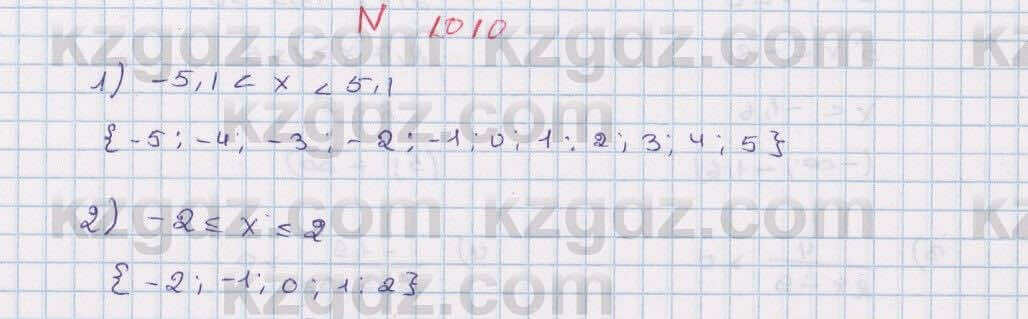 N 1010
kzgdz.com kzgdz.com kz
1) -5,1 < x < 5,1
kzgdz.com
{ -5; -4; -3; -2; -1; 0; 1; 2; 3; 4; 5 }
kzgdz.com kzgdz.com kz
2) -2 ≤ x ≤ 2
{ -2; -1; 0; 1; 2 }
kzgdz.com